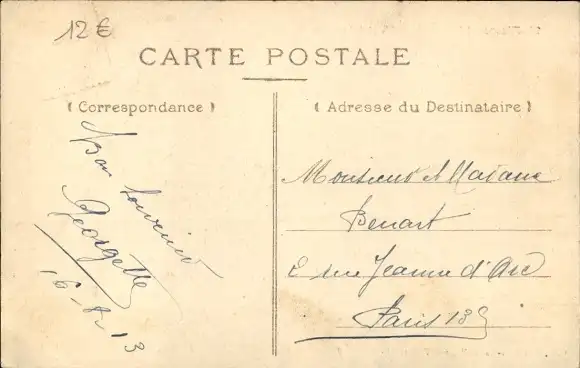 12 €
CARTE POSTALE
( Correspondance )
( Adresse du Destinataire )
Bon Souvenir
Georgette
16-8-13
Monsieur et Madame
Benart
2 rue Jeanne d'Arc
Paris 13e